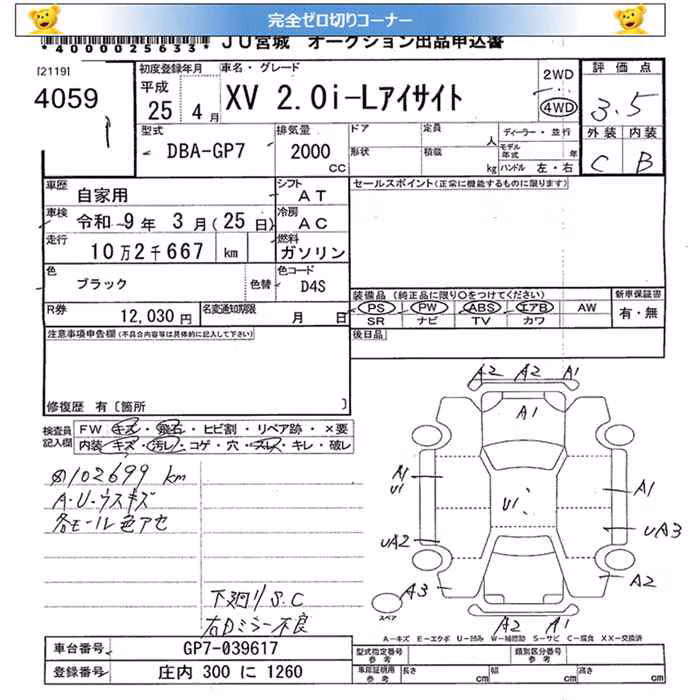 完全ゼロ切りコーナー
*4000025633*
JU宮城 オークション出品申込書
[2119]
4059
初度登録年月
平成
25 4月
車名・グレード
XV 2.0i-Lアイサイト
2WD
4WD
評価点
3.5
外装 内装
C B
型式
DBA-GP7
排気量
2000
CC
ドア 定員 人
形状 積載 kg
ディーラー・並行
モデル年式 年
ハンドル 左・右
車歴
自家用
シフト
AT
セールスポイント(正常に機能するものに限ります)
車検
令和 9年 3月(25日)
冷房
AC
走行
10万2千667 km
燃料
ガソリン
色
ブラック
色替
色コード
D4S
R券
12,030円
名変通知期限
月 日
装備品(純正品に限り○をつけてください)
PS PW ABS エアB AW
SR ナビ TV カワ
新車保証書
有・無
後日品
注意事項申告欄(不具合内容等は具体的に記入して下さい)
修復歴 有〔箇所 〕
検査員記入欄
FW キズ・飛石・ヒビ割・リペア跡・×要
内装 キズ・汚レ・コゲ・穴・スレ・キレ・破レ
102699 km
A・U・ウスキズ
各モール色アセ
下廻りS.C
右Dミラー不良
A2 A2 A1
A1
A1
U1
U1
A1
UA2
UA3
A3
A2
A2 A1
スペア
A-キズ E-エクボ U-凹み W-補修跡 S-サビ C-腐食 XX-交換済
車台番号
GP7-039617
登録番号
庄内 300 に 1260
型式指定番号
参考
類別区分番号
参考
車庫証明用
参考
長さ cm 幅 cm 高さ cm